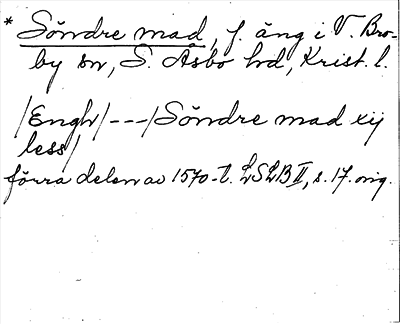 * Söndre mad, f. äng i V. Bro-
by sn, S. Åsbo hd, Krist. l.
/Engh/---/Söndre mad xij
less/
förra delen av 1570-t. LSLB II, s. 17. orig.